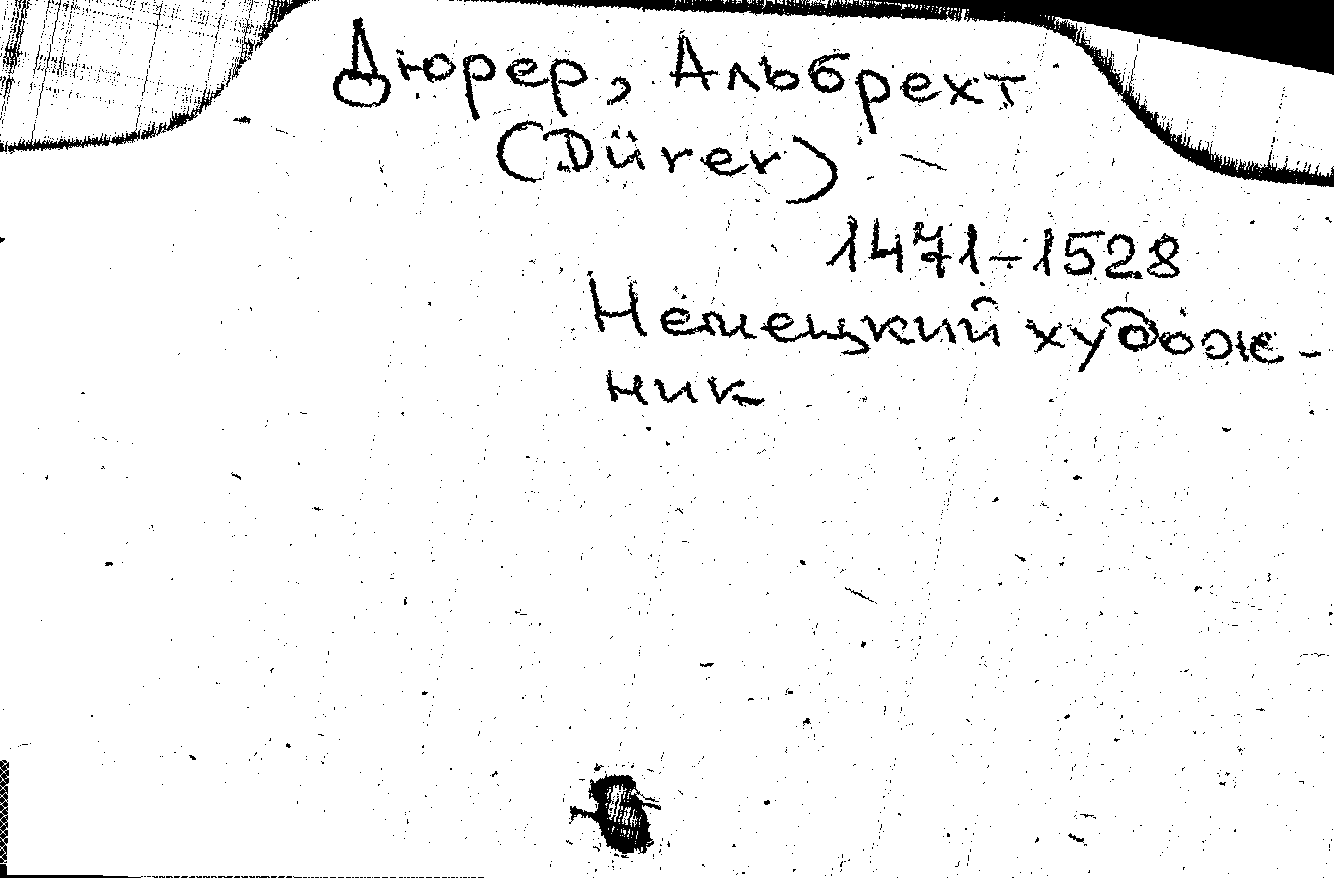 Дюрер, Альбрехт
(Dürer)
1471-1528
Немецкий худож-
ник